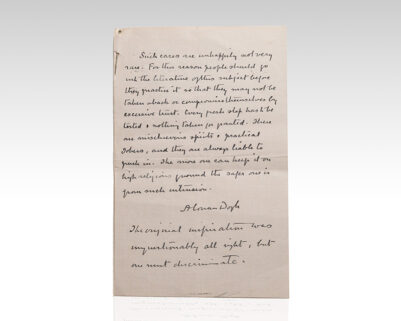 Such cases are unhappily not very
rare. For this reason people should go
into the literature of this subject before
they practice it so that they may not be
taken aback or compromise themselves by
excessive trust. Every fresh step has to be
tested & nothing taken for granted. There
are mischievous spirits & practical
Jokers, and they are always liable to
push in. The more one can keep it on
high religious ground the safer one is
from such intrusion.
A Conan Doyle
The original inspiration was
unquestionably all right, but
one must discriminate.